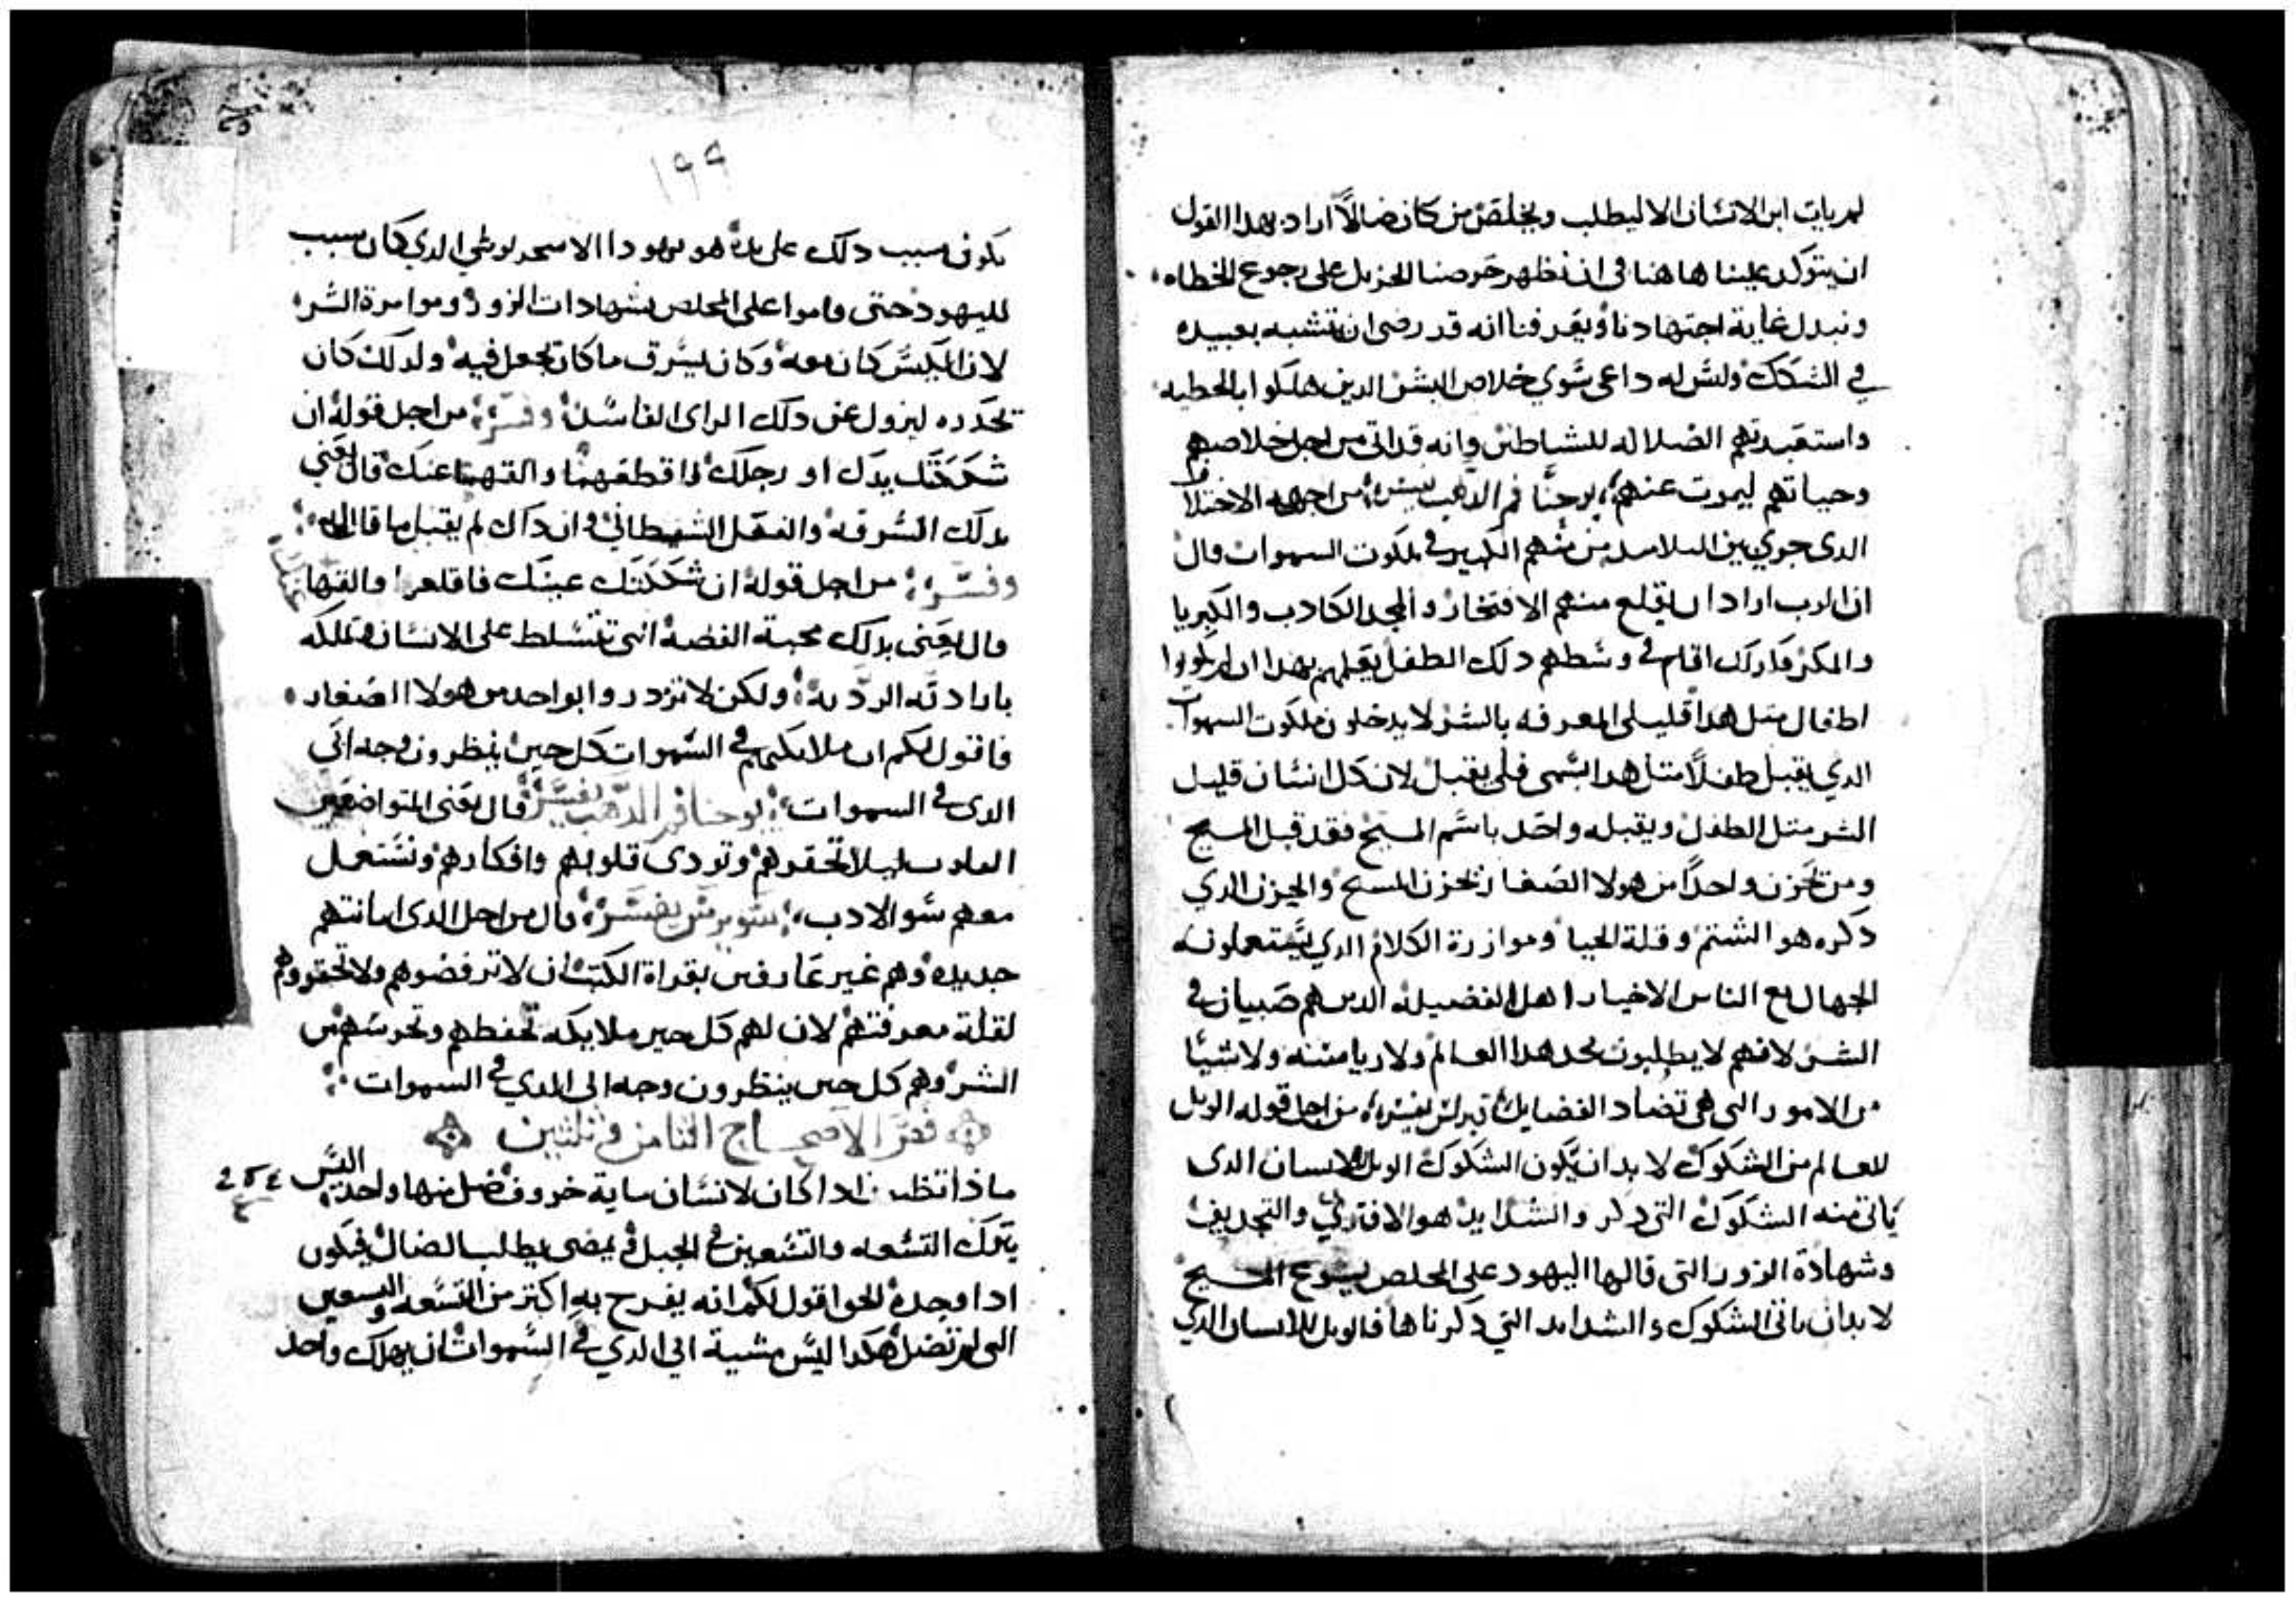 لم يات ابن الانسان الا ليطلب ويخلص من كان ضالًا اراد بهدا القول
ان يتوكد علينا هاهنا في ان نظهر حرصنا الجزيل على رجوع الخطاه
ونبدل غاية اجتهادنا ويعرفنا انه قد رضى ان تشبه بعبيده
في الشكك وليس له داعى سوي خلاص البشر الدين هلكوا بالخطيه
واستعبدتهم الضلاله للشياطين وانه قد اتى من اجل خلاصهم
وحياتهم ليموت عنهم يوحنا فم الدهب يفسره من اجل الاختلاف
الدى جري بين التلاميد من منهم الكبير في ملكوت السموات قال
ان الرب اراد ان يقلع منهم الافتخار والمجد الكادب والكبريا
والمكر اقام في وسطهم دلك الطفل يعلمهم بهدا ان لم يكونوا
اطفال متل هدا قليلى المعرفه بالشر لا يدخلون ملكوت السموات
الدي يقبل طفلًا متل هدا باسمى فلى يقبل لان كل انسان قليل
الشر متل الطفل ويقبله واحد باسم المسيح فقد قبل المسيح
ومن تحزن واحدًا من هولا الصغار يحزن المسيح والحزن الدي
دكره هو الشتم وقلة الحيا وموازرة الكلام الدي يستعملونه
الجهال مع الناس الاخيار اهل الفضيله الدين هم صبيان في
الشر لانهم لا يطلبون مجد هدا العالم ولا رياسته ولا شيًا
من الامور التى هى تضاد الفضايل يفسره من اجل قوله الويل
للعالم من الشكوك لا بد ان تكون الشكوك الويل للانسان الدى
ياتى منه الشكوك التى دكر والشدايد هو الافترى والتجديف
وشهادة الزور التى قالها اليهود على المخلص يسوع المسيح
لا بد ان ياتى الشكوك والشدايد التي دكرناها فالويل للانسان الدي
١٩٩
يكون سبب دلك على يده هو يهودا الاسخريوطي الدي كان سبب
لليهود حتى قاموا على المخلص بشهادات الزور وموامرة الشر
لان الكيس كان معه وكان يسرق ما كان يجعل فيه ولدلك كان
يحدده ليزول عن دلك الراى الفاسد وفسره من اجل قوله ان
شككتك يدك او رجلك فاقطعهما والقهما عنك قال يعنى
بدلك السرقه والفعل الشيطاني وان داك لم يقبل ما قال له
وفسره من اجل قوله ان شككتك عينك فاقلعها والقها عنك
قال يعنى بدلك محبة الفضة التى تتسلط على الانسان وتملكه
بارادته الرديه ولكن لا تزدروا بواحد من هولا الصغار
فاقول لكم ان ملايكتهم في السموات كل حين ينظرون وجه ابي
الدى في السموات يوحنا فم الدهب يفسره قال يعنى المتواضعين
ليلا تحقروهم وتودى قلوبهم وافكارهم ونستعمل
معهم سو الادب يفسره قال من اجل الدى امانتهم
جديده وهم غير عارفين بقراة الكتب ان لا ترفضوهم ولا تحقروهم
لقلة معرفتهم لان لهم كل حين ملايكه تحفظهم وتحرسهم من
الشر وهم كل حين ينظرون وجه ابى الدي في السموات
فص الاصحاح الثامن وثلثين
ماذا تظنون ادا كان لانسان ماية خروف فضل منها واحد اليس
يترك التسعه والتسعين في الجبل ويمضى يطلب الضال فيكون
ادا وجده الحق اقول لكم انه يفرح به اكتر من التسعه والتسعين
التى لم تضل هكدا ليس مشية ابي الدي في السموات ان يهلك واحد